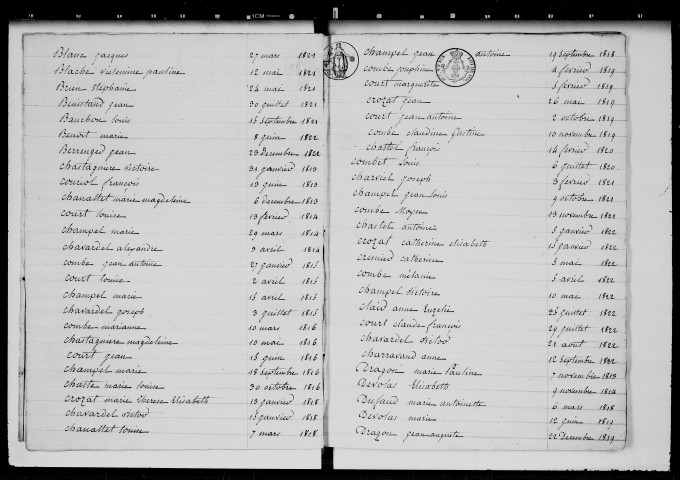 Blanc jacques 27 mars 1821
Blache victorine pauline 12 mai 1821
Brun Stéphanie 24 mai 1821
Benistand jean 30 juillet 1821
Bourbon louis 15 septembre 1821
Benoit marie 8 juin 1822
Berrenger jean 23 decembre 1822
chastagnere victoire 31 janvier 1813
couriol françois 19 juin 1813
chanallet marie magdeleine 6 decembre 1813
court louise 13 février 1814
champel marie 29 mars 1814
chavardel alexandre 3 avril 1814
combe jean antoine 27 janvier 1815
court louise 2 avril 1815
champel marie 15 avril 1815
chavardel joseph 3 juillet 1815
combe marianne 10 mars 1816
chastagnere magdeleine 10 mai 1816
court jean 15 juin 1816
champel marie 18 septembre 1816
chaste marie louise 30 octobre 1816
crozat marie therese Elisabeth 13 janvier 1818
chavardel victor 15 janvier 1818
chanallet louise 7 mars 1818
champel jean antoine 19 septembre 1818
combe josephine 4 février 1819
court marguerite 5 février 1819
crozat jean 26 mai 1819
court jean antoine 2 octobre 1819
combe claudine justine 10 novembre 1819
chastel françois 14 février 1820
combet louis 6 juillet 1820
charviel joseph 3 février 1821
champel jean louis 9 octobre 1821
combe 13 novembre 1821
chastel antoine 5 janvier 1822
crozat catherine elisabeth 15 janvier 1822
cresnier catherine 5 mai 1822
combe mélanie 5 avril 1822
champel victoire 10 mai 1822
clair anne 25 juillet 1822
court claude françois 29 juillet 1822
chavardel victor 21 aout 1822
charravand anne 12 septembre 1822
Dragon marie Pauline 7 novembre 1813
Devolas Elisabeth 9 novembre 1814
Dufaud marie antoinette 6 mars 1818
Devolas marie 12 juin 1819
Dragon jean auguste 22 decembre 1819